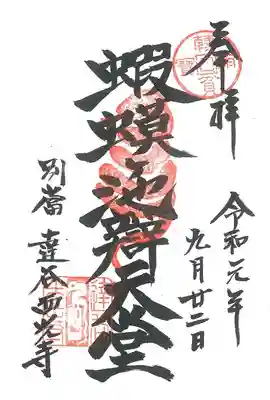 奉拝
令和元年
九月廿二日
蝦蟆池辯天堂
別當 達谷西光寺